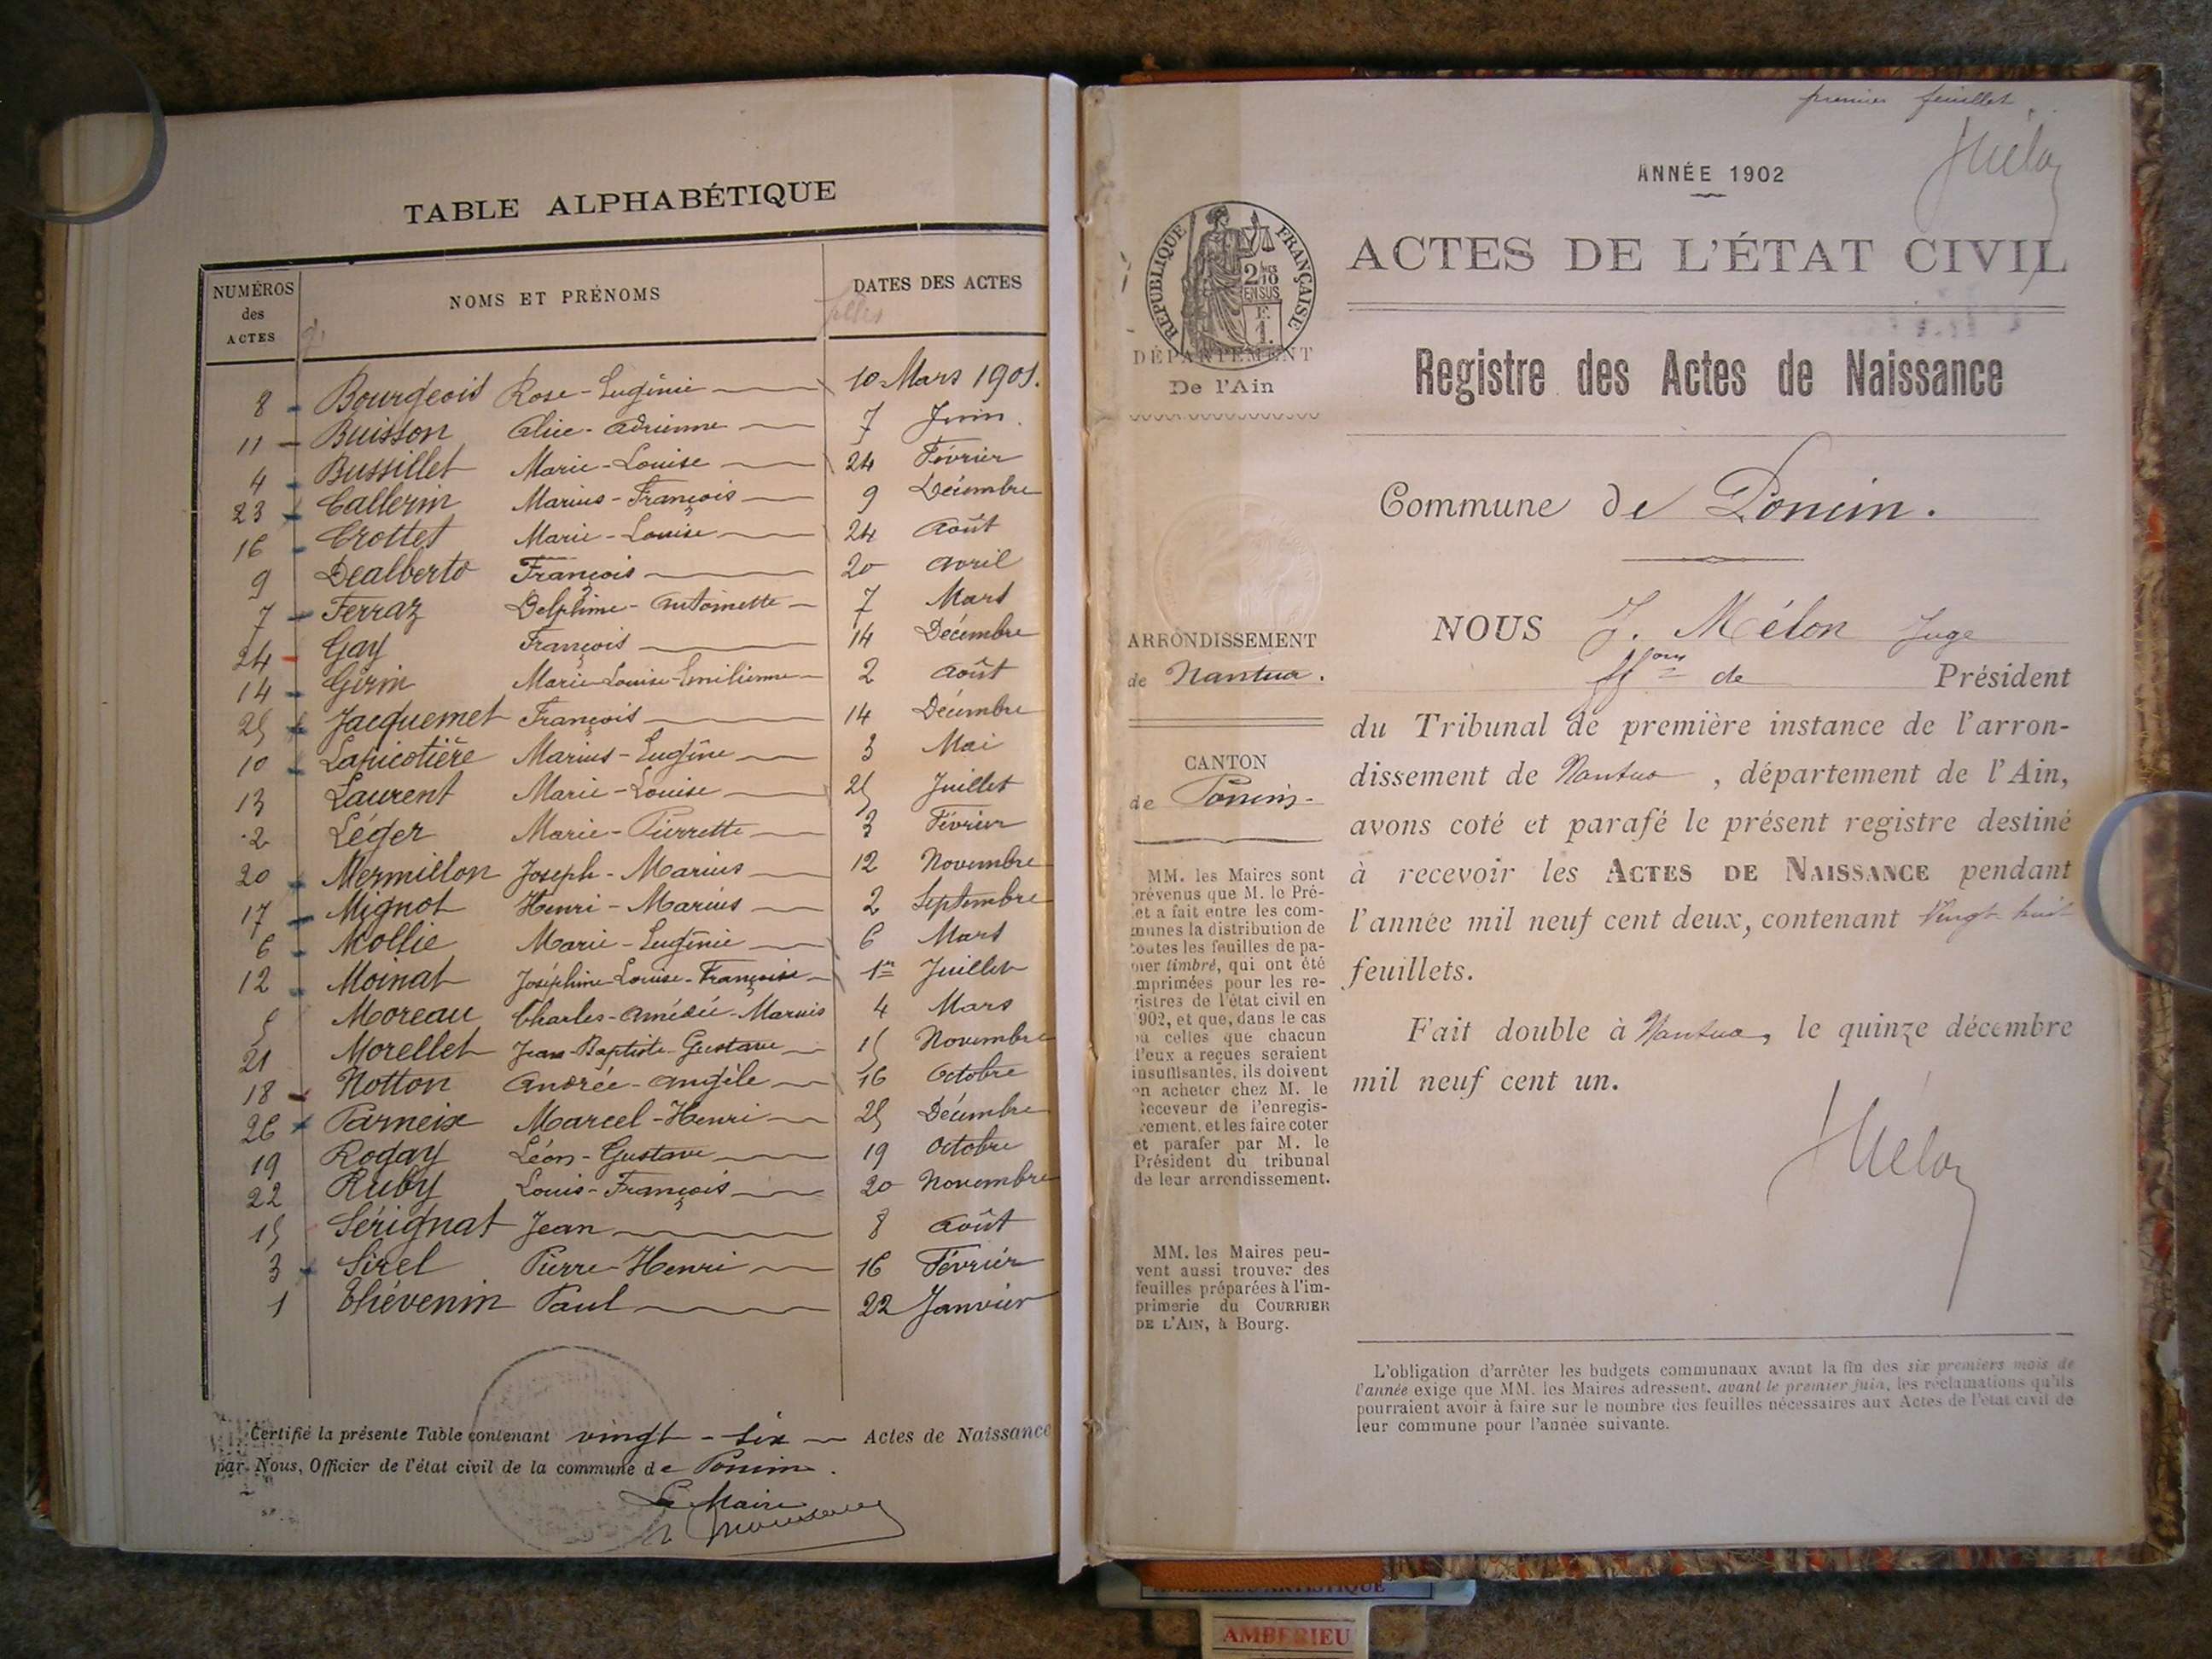 TABLE ALPHABÉTIQUE
NUMÉROS des ACTES NOMS ET PRÉNOMS DATES DES ACTES
filles
8 Bourgeois Rose-Eugénie 10 Mars 1901.
11 Buisson Alice-Adrienne 7 Juin
4 Bussillet Marie-Louise 24 Février
23 Callerin Marius-François 9 Décembre
16 Crottet Marie-Louise 24 Août
9 Dealberto François 20 Avril
7 Ferraz Delphine-Antoinette 7 Mars
24 Gay François 14 Décembre
14 Girin Marie-Louise-Emilienne 2 Août
25 Jacquemet François 14 Décembre
10 Lapicotière Marius-Eugène 3 Mai
13 Laurent Marie-Louise 25 Juillet
2 Léger Marie-Pierrette 3 Février
20 Mermillon Joseph-Marius 12 Novembre
17 Mignot Henri-Marius 2 Septembre
6 Mollie Marie-Eugénie 6 Mars
12 Moinat Joséphine-Louise-Françoise 1er Juillet
5 Moreau Charles-Amédée-Marius 4 Mars
21 Morellet Jean-Baptiste-Gustave 15 Novembre
18 Notton Andrée-Angèle 16 Octobre
26 Parneix Marcel-Henri 25 Décembre
19 Roday Léon-Gustave 19 Octobre
22 Ruby Louis-François 20 Novembre
15 Sérignat Jean 8 Août
3 Sirel Pierre-Henri 16 Février
1 Thévenin Paul 22 Janvier
Certifié la présente Table contenant vingt-six Actes de Naissance
par Nous, Officier de l'état civil de la commune de Poncin.
Le Maire
premier feuillet.
Mélon
ANNÉE 1902
ACTES DE L'ÉTAT CIVIL
RÉPUBLIQUE FRANÇAISE
2/10 EN SUS
F. 1.
DÉPARTEMENT
De l'Ain
Registre des Actes de Naissance
Commune de Poncin.
ARRONDISSEMENT
de Nantua.
CANTON
de Poncin
MM. les Maires sont
prévenus que M. le Pré-
et a fait entre les com-
munes la distribution de
toutes les feuilles de pa-
pier timbré, qui ont été
imprimées pour les re-
gistres de l'état civil en
1902, et que, dans le cas
où celles que chacun
d'eux a reçues seraient
insuffisantes, ils doivent
en acheter chez M. le
receveur de l'enregis-
trement, et les faire coter
et parafer par M. le
Président du tribunal
de leur arrondissement.
MM. les Maires peu-
vent aussi trouver des
feuilles préparées à l'im-
primerie du COURRIER
DE L'AIN, à Bourg.
NOUS J. Mélon Juge
ffons de Président
du Tribunal de première instance de l'arron-
dissement de Nantua, département de l'Ain,
avons coté et parafé le présent registre destiné
à recevoir les ACTES DE NAISSANCE pendant
l'année mil neuf cent deux, contenant Vingt huit
feuillets.
Fait double à Nantua, le quinze décembre
mil neuf cent un.
Mélon
L'obligation d'arrêter les budgets communaux avant la fin des six premiers mois de
l'année exige que MM. les Maires adressent, avant le premier juin, les réclamations qu'ils
pourraient avoir à faire sur le nombre des feuilles nécessaires aux Actes de l'état civil de
leur commune pour l'année suivante.
AMBERIEU